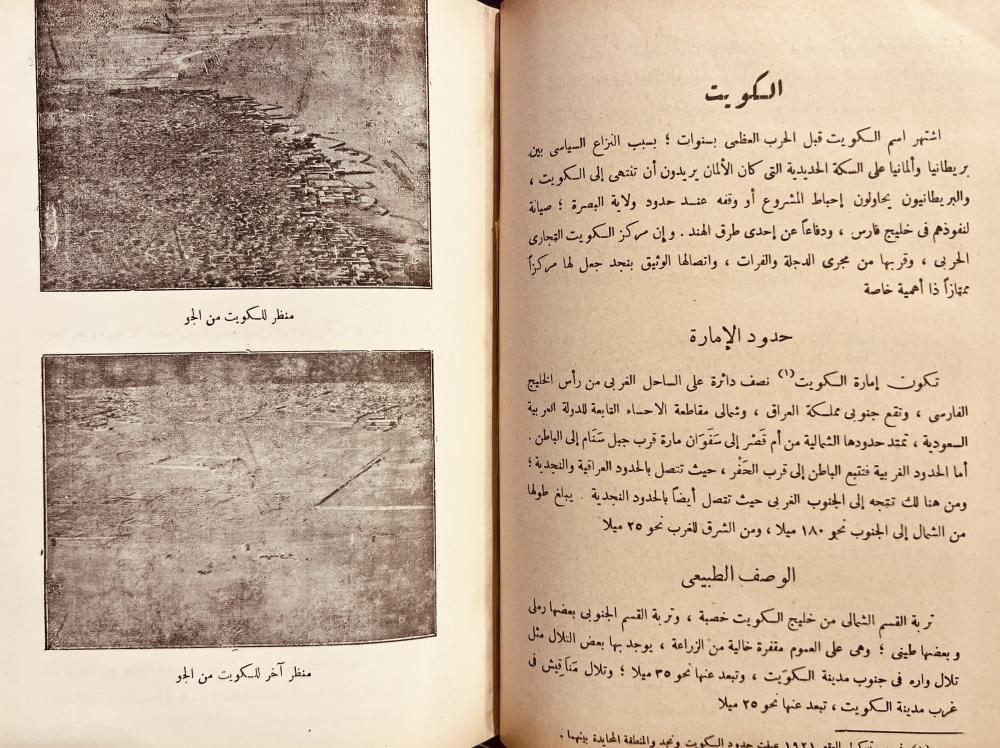 الكويت
اشتهر اسم الكويت قبل الحرب العظمى بسنوات ؛ بسبب النزاع السياسى بين
بريطانيا وألمانيا على السكة الحديدية التى كان الألمان يريدون أن تنتهى إلى الكويت ،
والبريطانيون يحاولون إحباط المشروع أو وقفه عند حدود ولاية البصرة ؛ صيانة
لنفوذهم فى خليج فارس ، ودفاعاً عن إحدى طرق الهند . وإن مركز الكويت التجارى
الحربى ، وقربها من مجرى الدجلة والفرات ، واتصالها الوثيق بنجد جعل لها مركزاً
ممتازاً ذا أهمية خاصة
حدود الإمارة
تكون إمارة الكويت(١) نصف دائرة على الساحل الغربى من رأس الخليج
الفارسى ، وتقع جنوبى مملكة العراق ، وشمالى مقاطعة الاحساء التابعة للدولة العربية
السعودية ، تمتد حدودها الشمالية من أم قَصْر إلى سَفَوَان مارة قرب جبل سَنَام إلى الباطن .
أما الحدود الغربية فتتبع الباطن إلى قرب الحَفْر ، حيث تتصل بالحدود العراقية والنجدية ؛
ومن هنا لك تتجه إلى الجنوب الغربى حيث تتصل أيضاً بالحدود النجدية . يبلغ طولها
من الشمال إلى الجنوب نحو ١٨٠ ميلا ، ومن الشرق للغرب نحو ٢٥ ميلا
الوصف الطبيعى
تربة القسم الشمالى من خليج الكويت خصبة ، وتربة القسم الجنوبى بعضها رملى
وبعضها طينى ؛ وهى على العموم مقفرة خالية من الزراعة ، يوجد بها بعض التلال مثل
تلال واره فى جنوب مدينة الكويت ، وتبعد عنها نحو ٣٥ ميلا ؛ وتلال مَنَاقِيش فى
غرب مدينة الكويت ، تبعد عنها نحو ٢٥ ميلا
١٩٢١ عملت حدود الكويت ونجد والمنطقة المحايدة بينهما .
منظر للكويت من الجو
منظر آخر للكويت من الجو